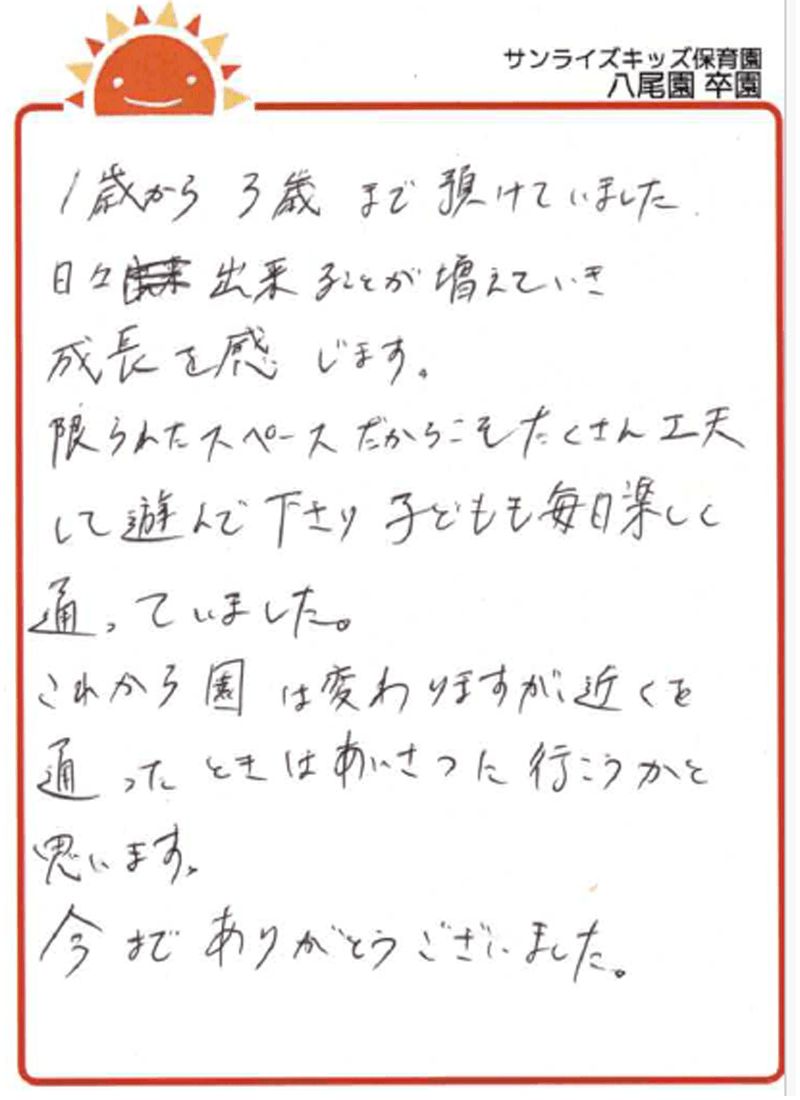 サンライズキッズ保育園
八尾園 卒園
1歳から 3歳 まで 預けていました.
日々 出来ることが 増えていき
成長を感じます。
限られたスペースだからこそたくさん工夫
して遊んで下さり 子どもも毎日楽しく
通っていました。
これから園は変わりますが、近くを
通ったときはあいさつに行こうかと
思います。
今まで ありがとうございました。